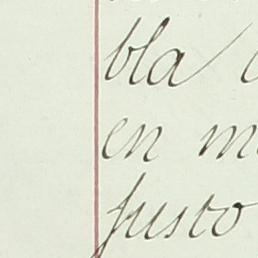 bla
en
justo